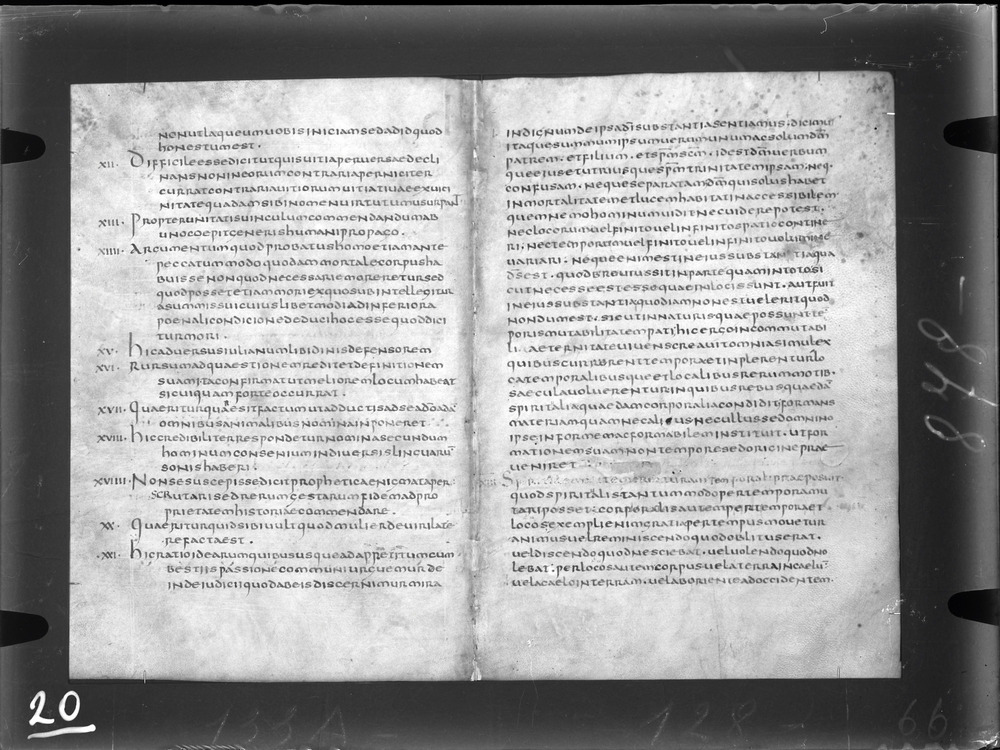 NONUTLAQUEUMUOBISINICIAMSEDADIDQUOD
hONESTUMEST.
XII. DIFFICILEESSEDICITUTQUISUITIAPERUERSAEDECLI
NANSNONINEORUMCONTRARIAPERNICITER
CURRATCONTRARIAUITIORUMUITIA
NITATEQUADAMSIBINOMENUIRTUTUM
XIII. PROPTERUNITATISUINCULUMCOMMENDANDUMAB
UNOCOEPITGENERISHUMANIPROPAGO.
XIIII. ARGUMENTUMQUODPROBATUShOMOETIAMANTE
PECCATUMMODOQUODAMMORTALECORPUSHA
BUISSENONQUODNECESSARIEMORERETURSED
QUODPOSSETETIAMMORIEXQUOSUBINTELLEGITUR
ASUMMISSUICUIUSLIBETMODIADINFERIORA
POENALICONDICIONEDEDUCIHOCESSEQUODDICI
TURMORI.
XV. hICADUERSUSIULIANUMLIBIDINISDEFENSOREM
XVI. RURSUMADQUAESTIONEMREDITETDEFINITIONEM
SUAMITACONFIRMATUTMELIOREMLOCUMHABEAT
SICUIQUAMFORTEOCCURRAT.
XVII. QUAERITURQUARESITFACTUMUTADDUCTISADSEADADA
OMNIBUSANIMALIBUSNOMINAIMPONERET
XVIII. hICCREDIBILITERRESPONDETURNOMINASECUNDUM
hOMINUMCONSENSUMINDIUERSISLINGUARU
SONISHABERI.
XVIIII. NONSESUSCEPISSEDICITPROPHETICAENIGMATAPER
SCRUTARISEDRERUMGESTARUMFIDEMADPRO
PRIETATEMHISTORIAECOMMENDARE.
XX. QUAERITURQUIDSIBIUULTQUODMULIERDEUIRILATE
REFACTAEST.
XXI. hICRATIOIDEARUMQUIBUSUSQUEADAPPETITUMCUM
BESTIISPASSIONECOMMUNIURGUEMURDE
INDEIUDICIIQUODABEISDISCERNIMURMIRA
INDIGNUMDEIPSADISUBSTANTIASENTIAMUS.DICIMUS
ITAQUESUMMUMIPSUMUERUMUNUMACSOLUMDM
PATREM.ETFILIUM.ETSPMSCM.IDESTDMUERBUM
QUEEIUSETUTRIUSQUESPMTRINITATEMIPSAM.NEQ.
CONFUSAM.NEQUESEPARATAMDMQUISOLUSHABET
INMORTALITATEMETLUCEMHABITATINACCESSIBILEM
QUEMNEMOHOMINUMUIDITNECUIDEREPOTEST.
NECLOCORUMUELFINITOUELINFINITOSPATIOCONTINE
RI.NECTEMPORUMUELFINITOUELINFINITOUOLUMINE
UARIARI.NEQUEENIMESTINEIUSSUBSTANTIAQUA
DSEST.QUODBREUIUSSITINPARTEQUAMINTOTOSI
CUTNECESSEESTESSEQUAEINLOCISSUNT.AUTFUIT
INEIUSSUBSTANTIAQUODIAMNONESTUELERITQUOD
NONDUMEST.SICUTINNATURISQUAEPOSSUNTTE
PORISMUTABILITATEMPATI hICERGOINCOMMUTABI
LI.AETERNITATEUIUENSCREAUITOMNIASIMULEX
QUIBUSCURRERENTTEMPORAETINPLERENTURLO
CATEMPORALIBUSQUEETLOCALIBUSRERUMMOTIB.
SAECULAUOLUERENTURINQUIBUSREBUSQUAEDA
SPIRITALIAQUAEDAMCORPORALIACONDIDITFORMANS
MATERIAMQUAMNECALIUSNECULLUSSEDOMNINO
IPSEINFORMEMACFORMABILEMINSTITUIT.UTFOR
MATIONEMSUAMNONTEMPORESEDORIGINEPRAE
UENIRET
QUODSPIRITALISTANTUMMODOPERTEMPORAMU
TARIPOSSET.CORPORALISAUTEMPERTEMPORAET
LOCOSEXEMPLIENIMGRATIAPERTEMPUSMOUETUR
ANIMUSUELREMINISCENDOQUODOBLITUSERAT.
UELDISCENDOQUODNESCIEBAT.UELUOLENDOQUODNO
LEBAT.PERLOCOSAUTEMCORPUSUELATERRAINCAELU
UELACAELOINTERRAM.UELABORIENTEADOCCIDENTEM.
848
20